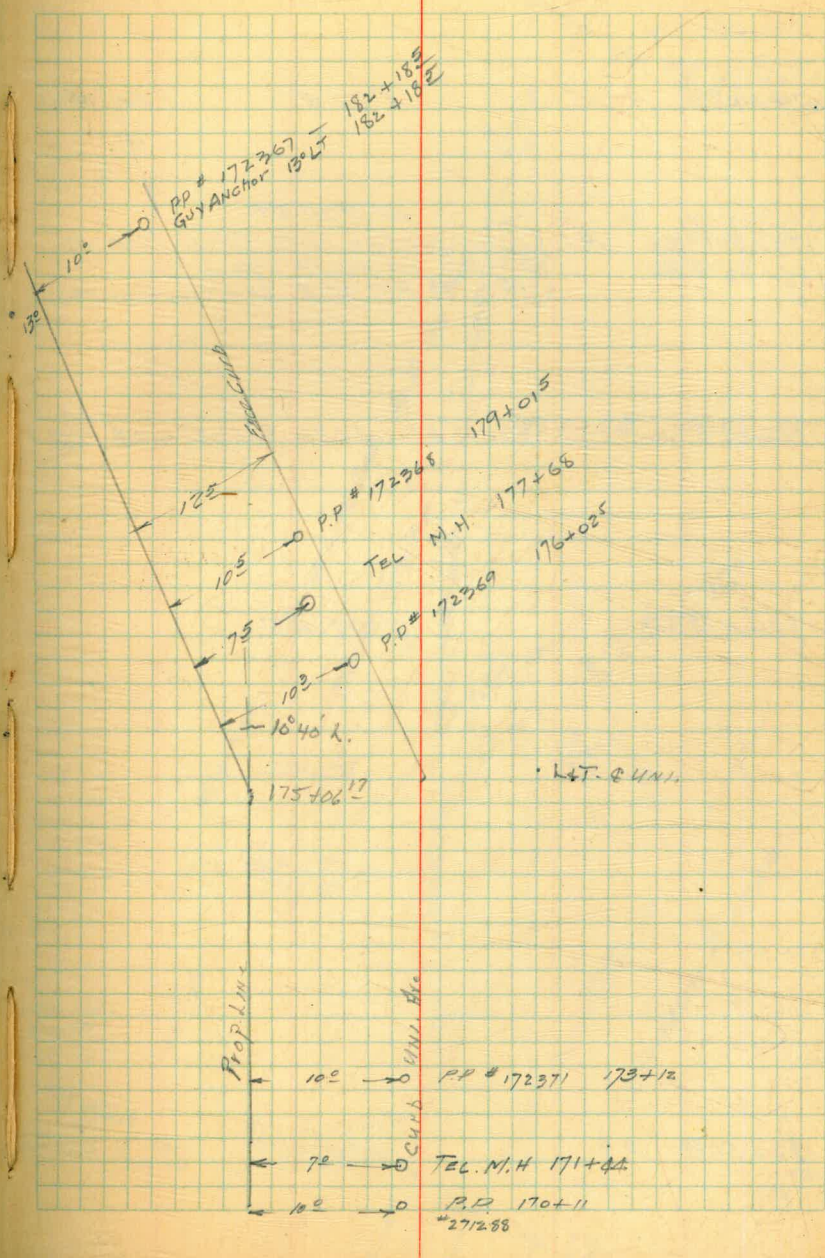 182 + 18⁵
PP # 172367 — 182 + 18⁵
GUY ANCHOR 13⁰ LT
10⁰
13⁰
Face Curb
12⁵
P.P # 172368 179+01⁵
10⁵
TEL M.H 177+68
7⁵
P.P # 172369 176+02⁵
10³
10°40' L.
175+06¹⁷
Prop. Line
Curb UNI. Ave
10⁰ P.P # 172371 173+12
7⁰ TEL. M.H 171+44
10⁰ P.P. 170+11
#271288